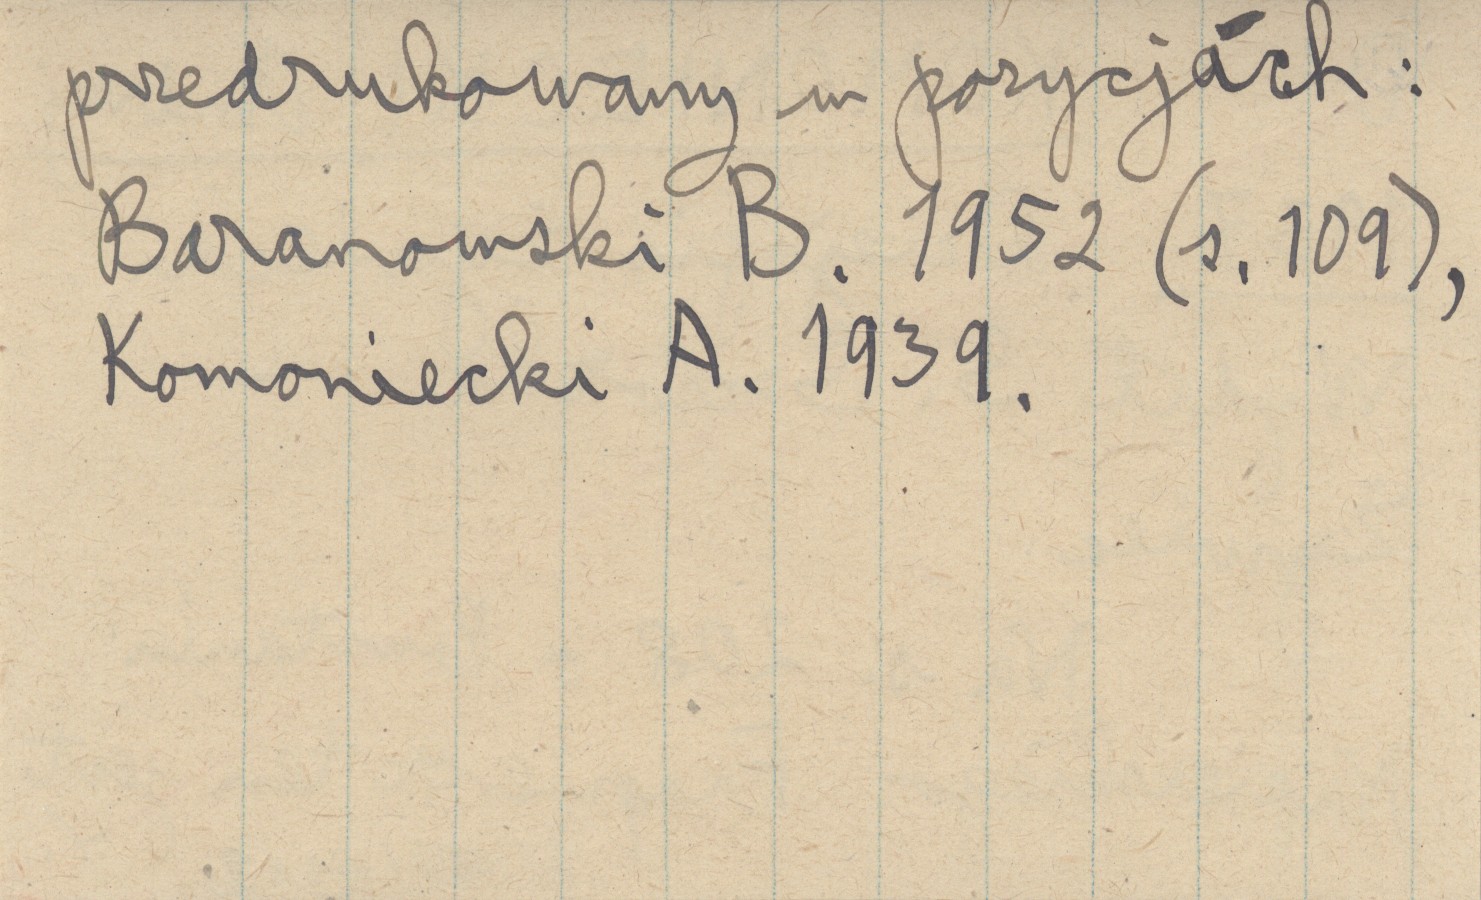 przedrukowany w pozycjach:
Baranowski B. 1952 (s. 109),
Komoniecki A. 1939.